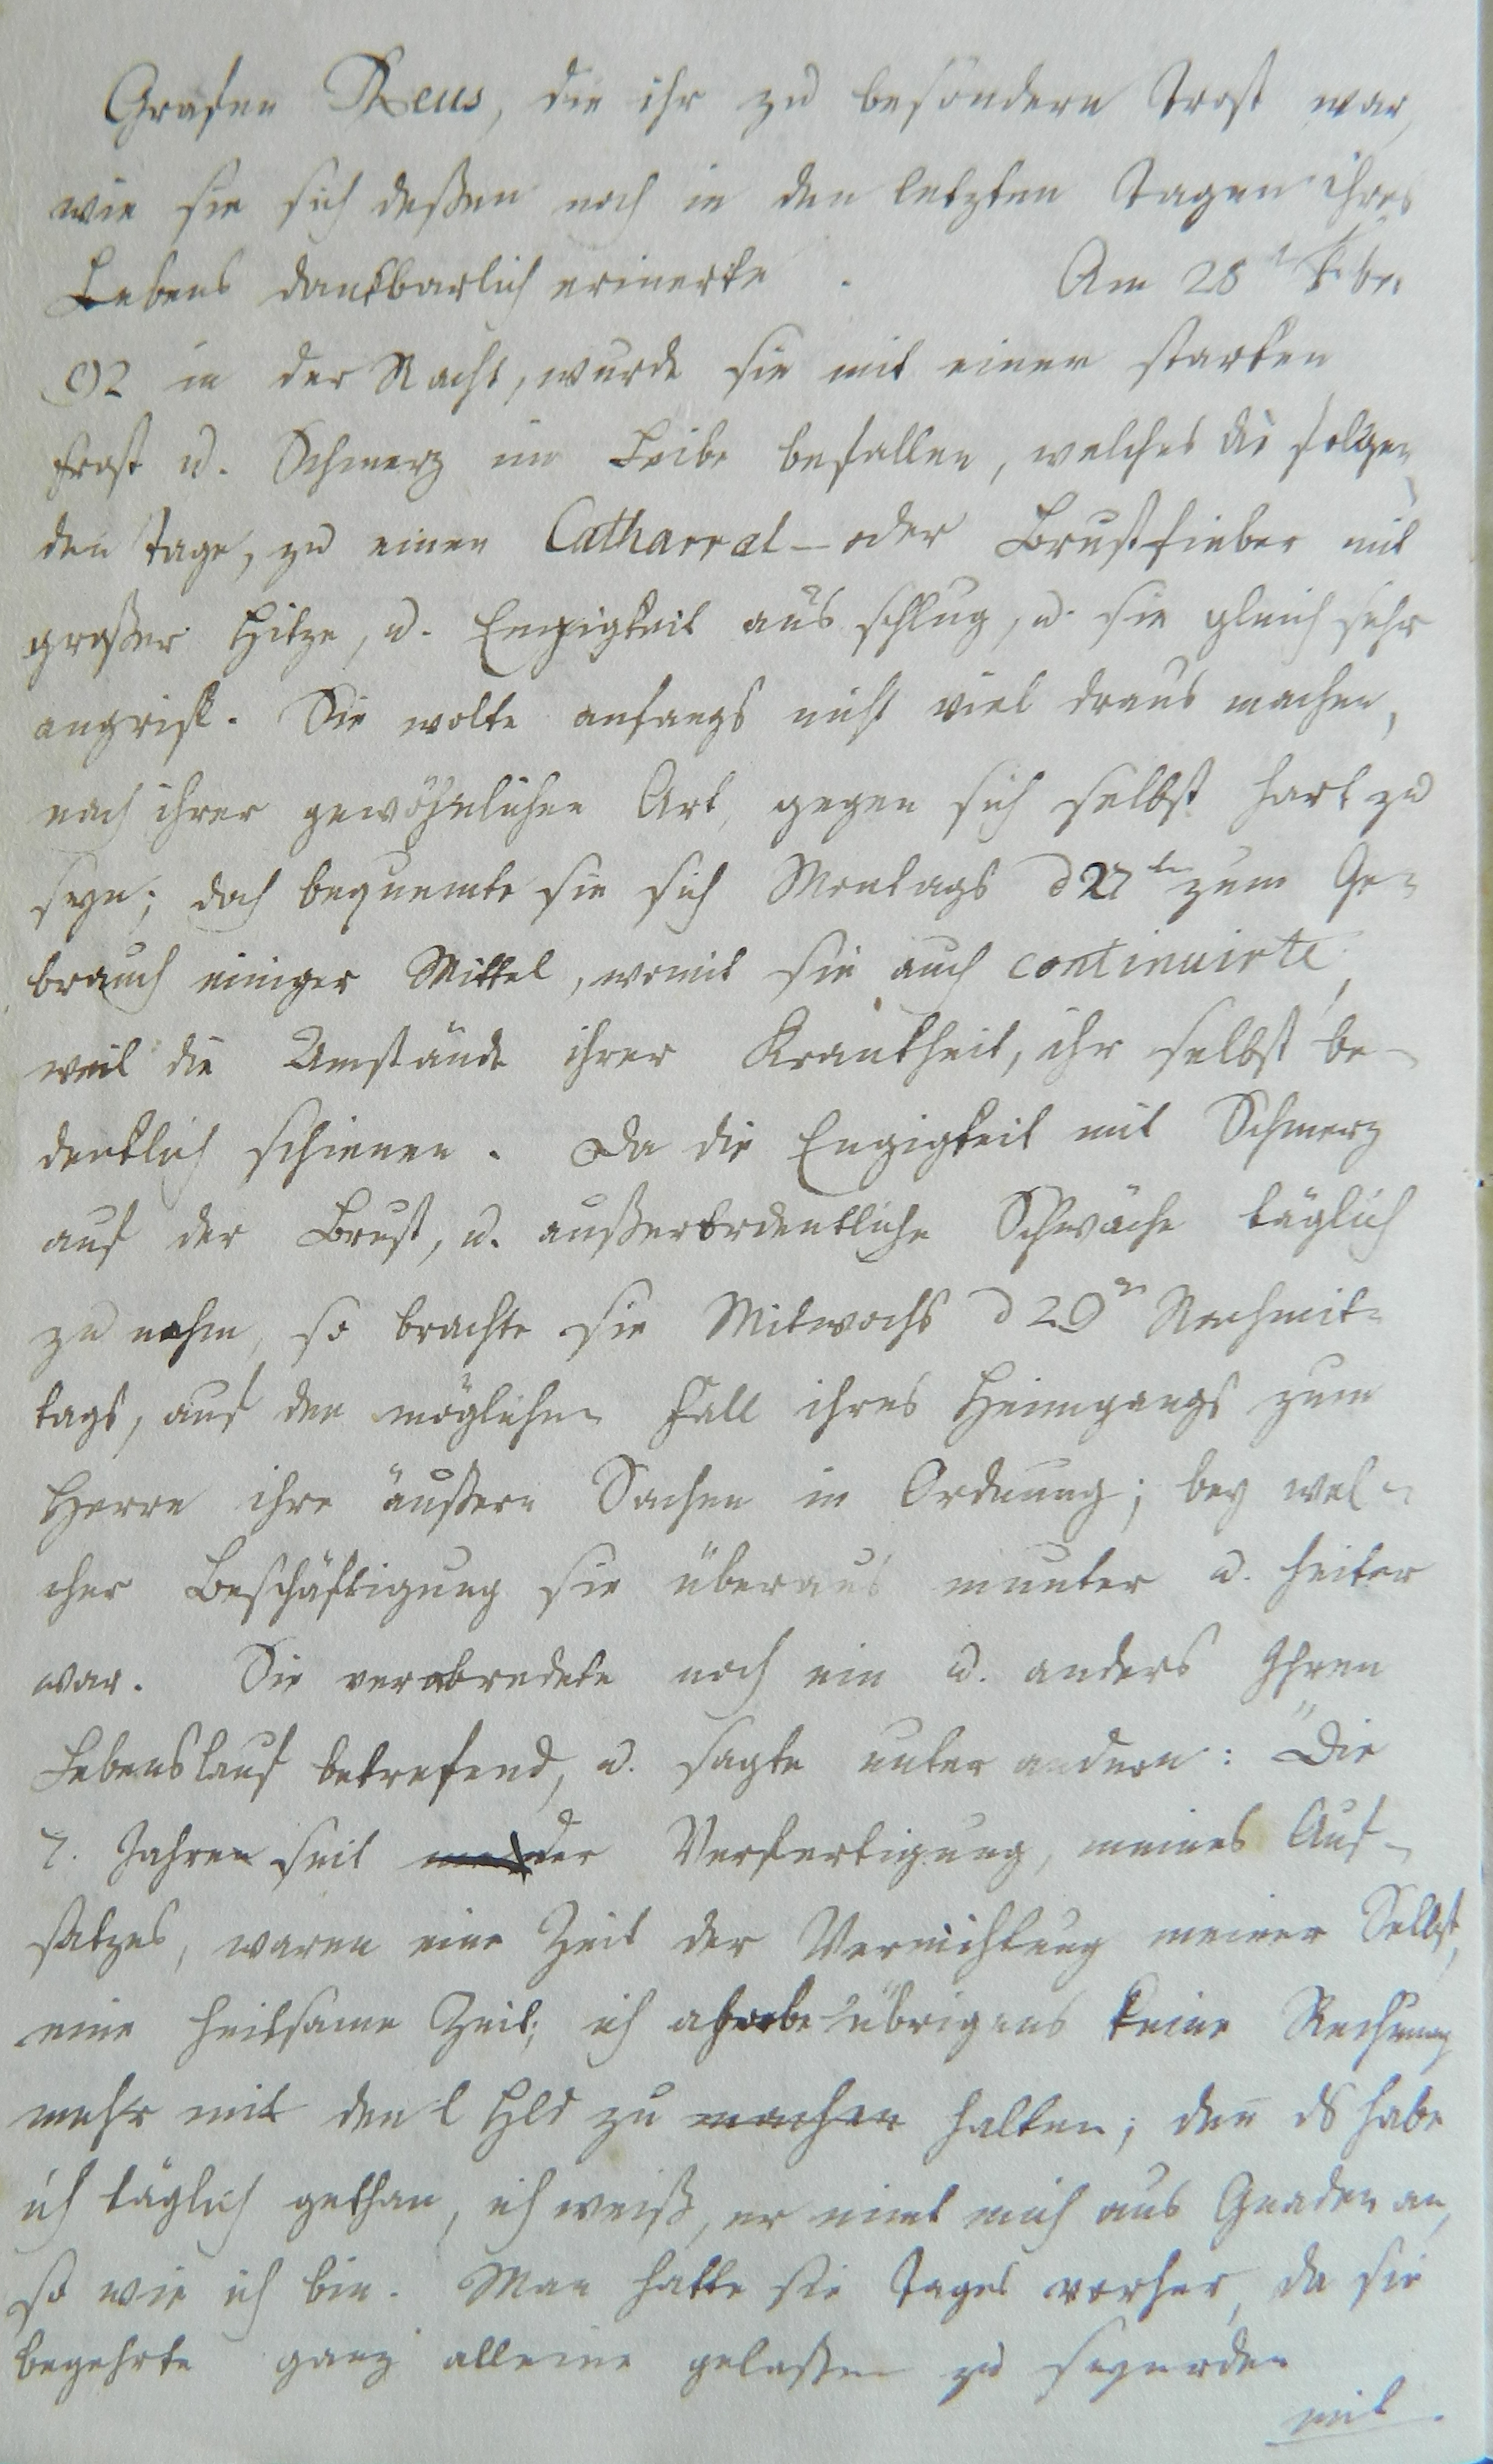 Grafen Reus, die ihr zu besondern Trost war,
wie sie sich deßen noch in den letzten Tagen ihres
Lebens dankbarlich erinerte. Am 25t Febr.
92 in der Nacht, wurde sie mit einen starken
Frost u. Schmerz im Leibe befallen, welches die folgen
den Tage, zu einen Catharral- oder Brustfieber mit
großer Hitze, u. Engigkeit aus schlug, u. sie gleich sehr
angrif. Sie wolte anfangs nicht viel draus machen,
nach ihrer gewöhnlichen Art, gegen sich selbst hart zu
seyn; doch bequemte sie sich Montags d 27ten zum Ge=
brauch einiger Mittel, womit sie auch continuirte,
weil die Umstände ihrer Krankheit, ihr selbst be-
denklich schienen. Da die Engigkeit mit Schmerz
auf der Brust, u. außerordentliche Schwäche täglich
zu nahm, so brachte sie Mitwochs d 29n Nachmit=
tags, auf den möglichen Fall ihres Heimgangs zum
Herrn ihre äußern Sachen in Ordnung; bey wel=
cher Beschäftigung sie überaus munter u. heiter
war. Sie verabredete noch ein u. anders Ihren
Lebenslauf betrefend, u. sagte unter andern: "Die
7. Jahren seit der Verfertigung, meines Auf-
satzes, waren eine Zeit der Vernichtung meiner Selbst,
eine heilsame Zeit; ich habe übrigens keine Rechnung
mehr mit den l Hld zu machen halten; den ds habe
ich täglich gethan, ich weiß, er nimt mich aus Gnaden an,
so wie ich bin. Man hatte sie Tages vorher, da sie
begehrte ganz alleine gelaßen zu
mit.